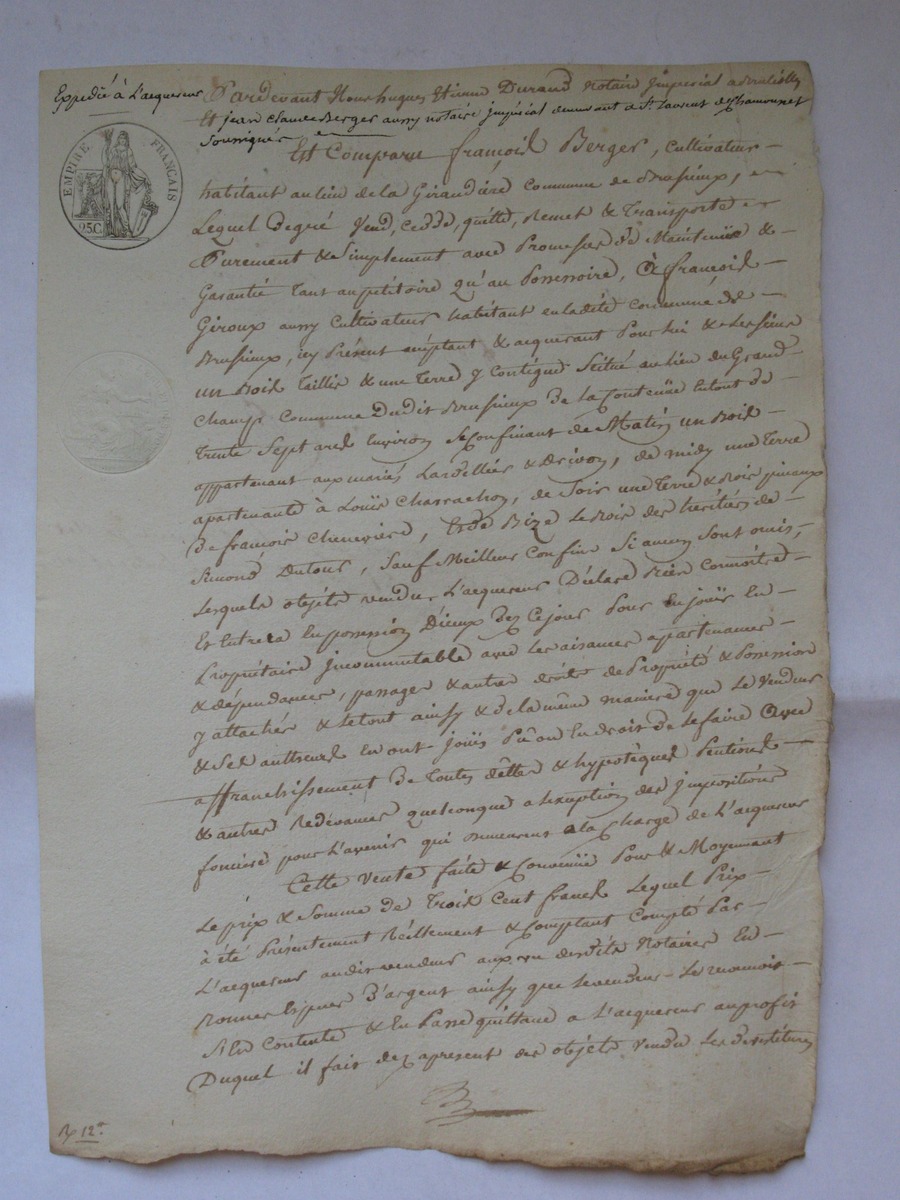 Expedié à L'acquereur
Pardevant Nous hugues Etienne Durand Notaire Imperial a
Et jean Claude Berger aussy notaire jmpérial demeurant a St Laurent de Chamousset
soussignés
EMPIRE FRANÇAIS
25.C.
Est Comparu françois Berger, Cultivateur
habitant au lieu de la Girandière Commune de Brusieux,
Lequel degré Vend, cedde, quitte, Remet & Transporte
Purement & Simplement avec Promesse de Maintenir &
Garantié tant au petitoire qu'au Possessoire, à françois
Giroux aussy Cultivateur habitant en ladite Commune de
Brusieux, icy Présent acceptant & acquerant Pour lui & Les siens
un Bois Taillis & une Terre y Contigue Scitué au lieu du Grand
Champ Commune Dudit Brusieux De la Contenüe En tout de
trente Sept ares Environ Se Confinant de Matin un Bois
appartenant aux mariés Lardellier & Drivon, de midy une Terre
apartenante à Louis Charrachon, de Soir une Terre & Bois pinaux
De francois Cheneviere, Et de Bize Le Bois des heritiers de
Simond Dutour, Sauf Meilleurs Confins Si aucuns Sont omis,
Lesquels objets vendus L'acquereur Déclare Bien Connoitre
Et Entrera En possession D'ieux Dez Ce jour Pour En jouir En
Propriétaire jncommutable avec Les aisances apartenances
& dépendances, passages & autres droits de Propriété & Possession
y attachés & le tout ainsy & de la même maniere que Le Vendeur
& Ses autheurs En ont jouis Pû ou En droit de Le faire avec
affranchissement De Toutes dettes & hypotêques Pentions
& autres Redevances quelconques a Lexeption des jmpositions
foncieres pour L'avenir qui demeurent a la Charge de L'acquereur
Cette vente faite & Convenüe Pour & Moyennant
Le prix & Somme De Trois Cent francs Lequel Prix
à été Présentement Réellement & Comptant Compté Par
L'acquereur audit vendeur aux vu desdits Notaires En
Bonnes Espèces D'argent ainsy que Le vendeur Le reconnoit
S'En Contente & En Passe quittance a L'acquereur au profit
Duquel il fait dez apresent des objets vendu Les
12